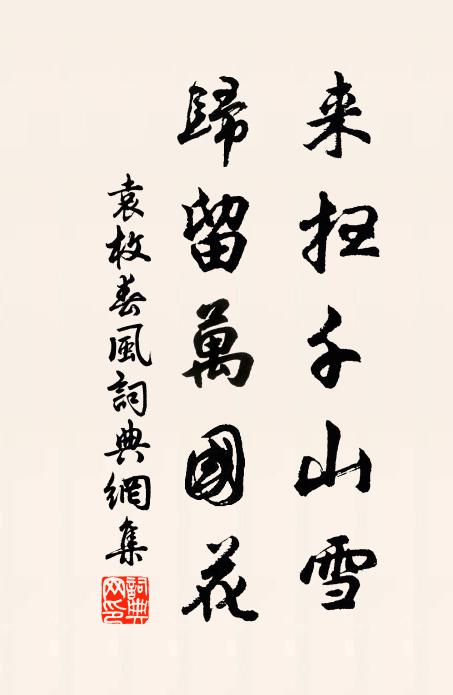 来扫千山雪
歸留萬國花
袁枚春風詞典網集
詞典網印